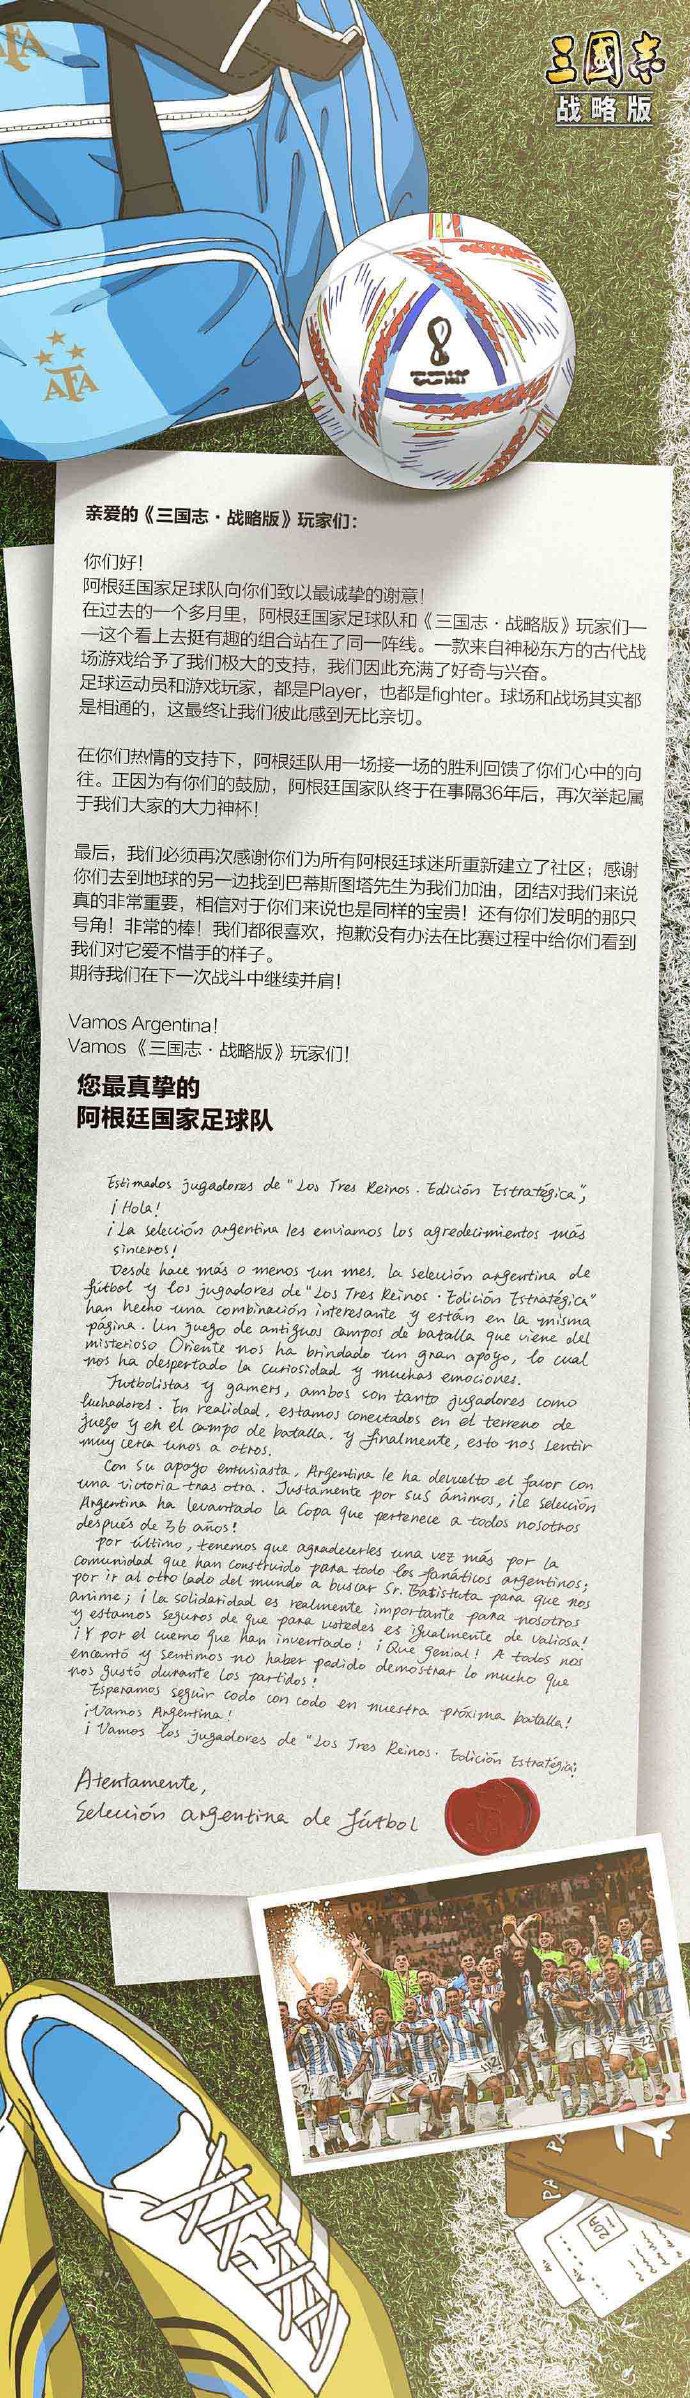 AFA
三國志
战略版
AFA
亲爱的《三国志·战略版》玩家们：
你们好！
阿根廷国家足球队向你们致以最诚挚的谢意！
在过去的一个多月里，阿根廷国家足球队和《三国志·战略版》玩家们—
—这个看上去挺有趣的组合站在了同一阵线。一款来自神秘东方的古代战
场游戏给予了我们极大的支持，我们因此充满了好奇与兴奋。
足球运动员和游戏玩家，都是Player，也都是fighter。球场和战场其实都
是相通的，这最终让我们彼此感到无比亲切。
在你们热情的支持下，阿根廷队用一场接一场的胜利回馈了你们心中的向
往。正因为有你们的鼓励，阿根廷国家队终于在事隔36年后，再次举起属
于我们大家的大力神杯！
最后，我们必须再次感谢你们为所有阿根廷球迷所重新建立了社区；感谢
你们去到地球的另一边找到巴蒂斯图塔先生为我们加油，团结对我们来说
真的非常重要，相信对于你们来说也是同样的宝贵！还有你们发明的那只
号角！非常的棒！我们都很喜欢，抱歉没有办法在比赛过程中给你们看到
我们对它爱不惜手的样子。
期待我们在下一次战斗中继续并肩！
Vamos Argentina！
Vamos《三国志·战略版》玩家们！
您最真挚的
阿根廷国家足球队
Estimados jugadores de "Los Tres Reinos. Edición Estratégica",
¡Hola!
¡La selección argentina les enviamos los agredecimientos más
sinceros!
Desde hace más o menos un mes, la selección argentina de
fútbol y los jugadores de "Los Tres Reinos · Edición Estratégica"
han hecho una combinación interesante y están en la misma
página. Un juego de antiguos campos de batalla que viene del
misterioso Oriente nos ha brindado un gran apoyo, lo cual
nos ha despertado la curiosidad y muchas emociones.
Futbolistas y gamers, ambos son tanto jugadores como
luchadores. En realidad, estamos conectados en el terreno de
juego y en el campo de batalla. y finalmente, esto nos sentir
muy cerca unos a otros.
Con su apoyo entusiasta, Argentina le ha devuelto el favor con
una victoria tras otra. Justamente por sus ánimos, ¡le Selección
Argentina ha levantado la Copa que pertenece a todos nosotros
después de 36 años!
por último, tenemos que agradecerles una vez más por la
comunidad que han construido para todo los fanáticos argentinos;
por ir al otro lado del mundo a buscar Sr. Batistuta para que nos
anime; ¡la solidaridad es realmente importante para nosotros
y estamos seguros de que para ustedes es igualmente de valiosa!
¡Y por el cuerno que han inventado! ¡Que genial! A todos nos
encantó y sentimos no haber podido demostrar lo mucho que
nos gustó durante los partidos!
Esperamos seguir codo con codo en nuestra próxima batalla!
¡Vamos Argentina!
¡Vamos los jugadores de "Los Tres Reinos. Edición Estratégica!
Atentamente,
Selección argentina de fútbol